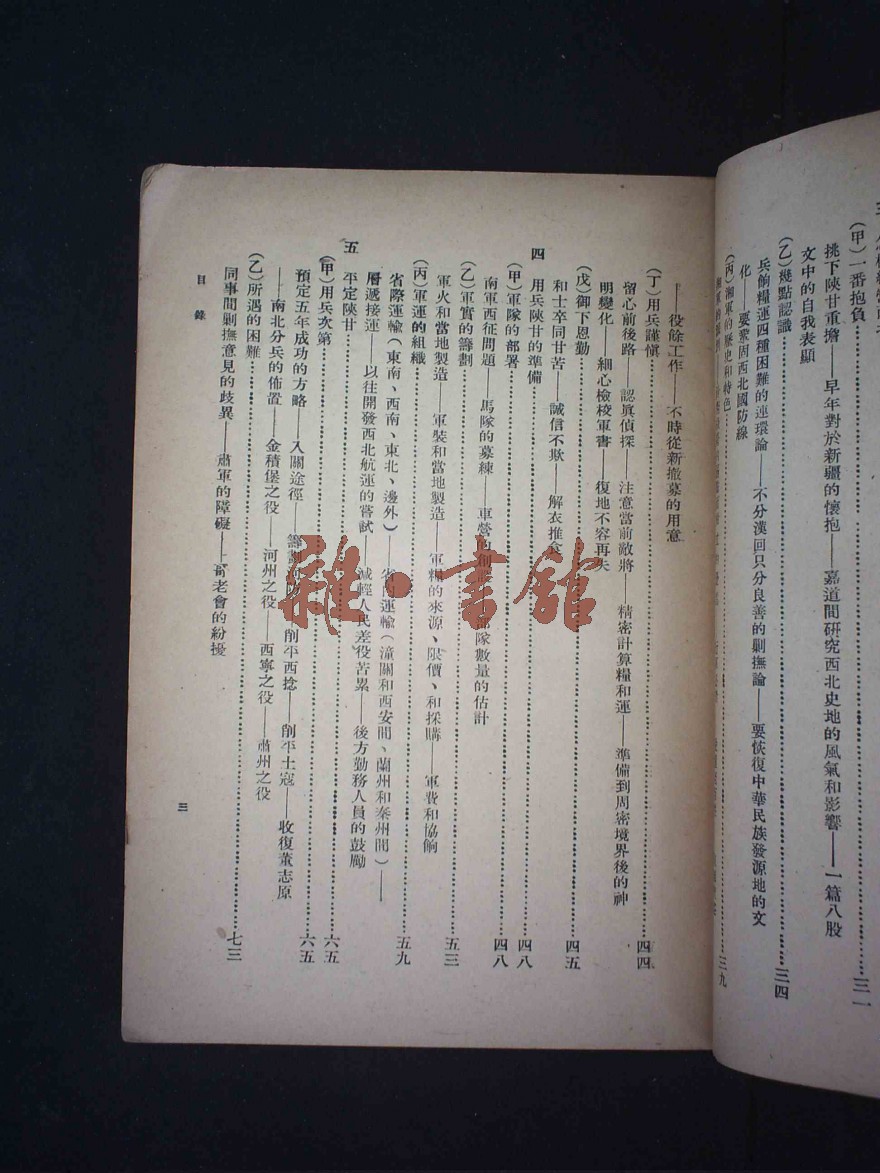 (甲)一番抱負……三一
挑下陝甘重擔——早年對於新疆的懷抱——嘉道間研究西北史地的風氣和影響——一篇八股
文中的自我表顯
(乙)幾點認識……三四
兵餉糧運四種困難的連環論——不分漢回只分良善的剿撫論——要恢復中華民族發源地的文
化——要鞏固西北國防線
(丙)湘軍的歷史和特色……三九
——役餘工作——不時從新撤墓的用意
(丁)用兵謹愼……四四
留心前後路——認眞偵探——注意當前敵將——精密計算糧和運——準備到周密境界後的神
明變化——細心檢校軍書——復地不容再失
(戊)御下恩勤……四五
和士卒同甘苦——誠信不欺——解衣推食
四 用兵陝甘的準備……四八
(甲)軍隊的部署……四八
南軍西征問題——馬隊的募練——車營的創設——部隊數量的估計
(乙)軍實的籌劃……五三
軍火和當地製造——軍裝和當地製造——軍糧的來源、限價、和採購——軍費和協餉
(丙)軍運的組織……五九
省際運輸(東南、西南、東北、邊外)——省內運輸(潼關和西安間、蘭州和秦州間)——
層遞接運——以往開發西北航運的嘗試——減輕人民差役苦累——後方勤務人員的鼓勵
五 平定陝甘……六五
(甲)用兵次第……六五
預定五年成功的方略——入關途徑——籌劃河防——削平西捻——削平土寇——收復董志原
——南北分兵的佈置——金積堡之役——河州之役——西寧之役——肅州之役
(乙)所遇的困難……七三
同事間剿撫意見的歧異——肅軍的障礙——哥老會的紛擾
目錄
三
雜·書館